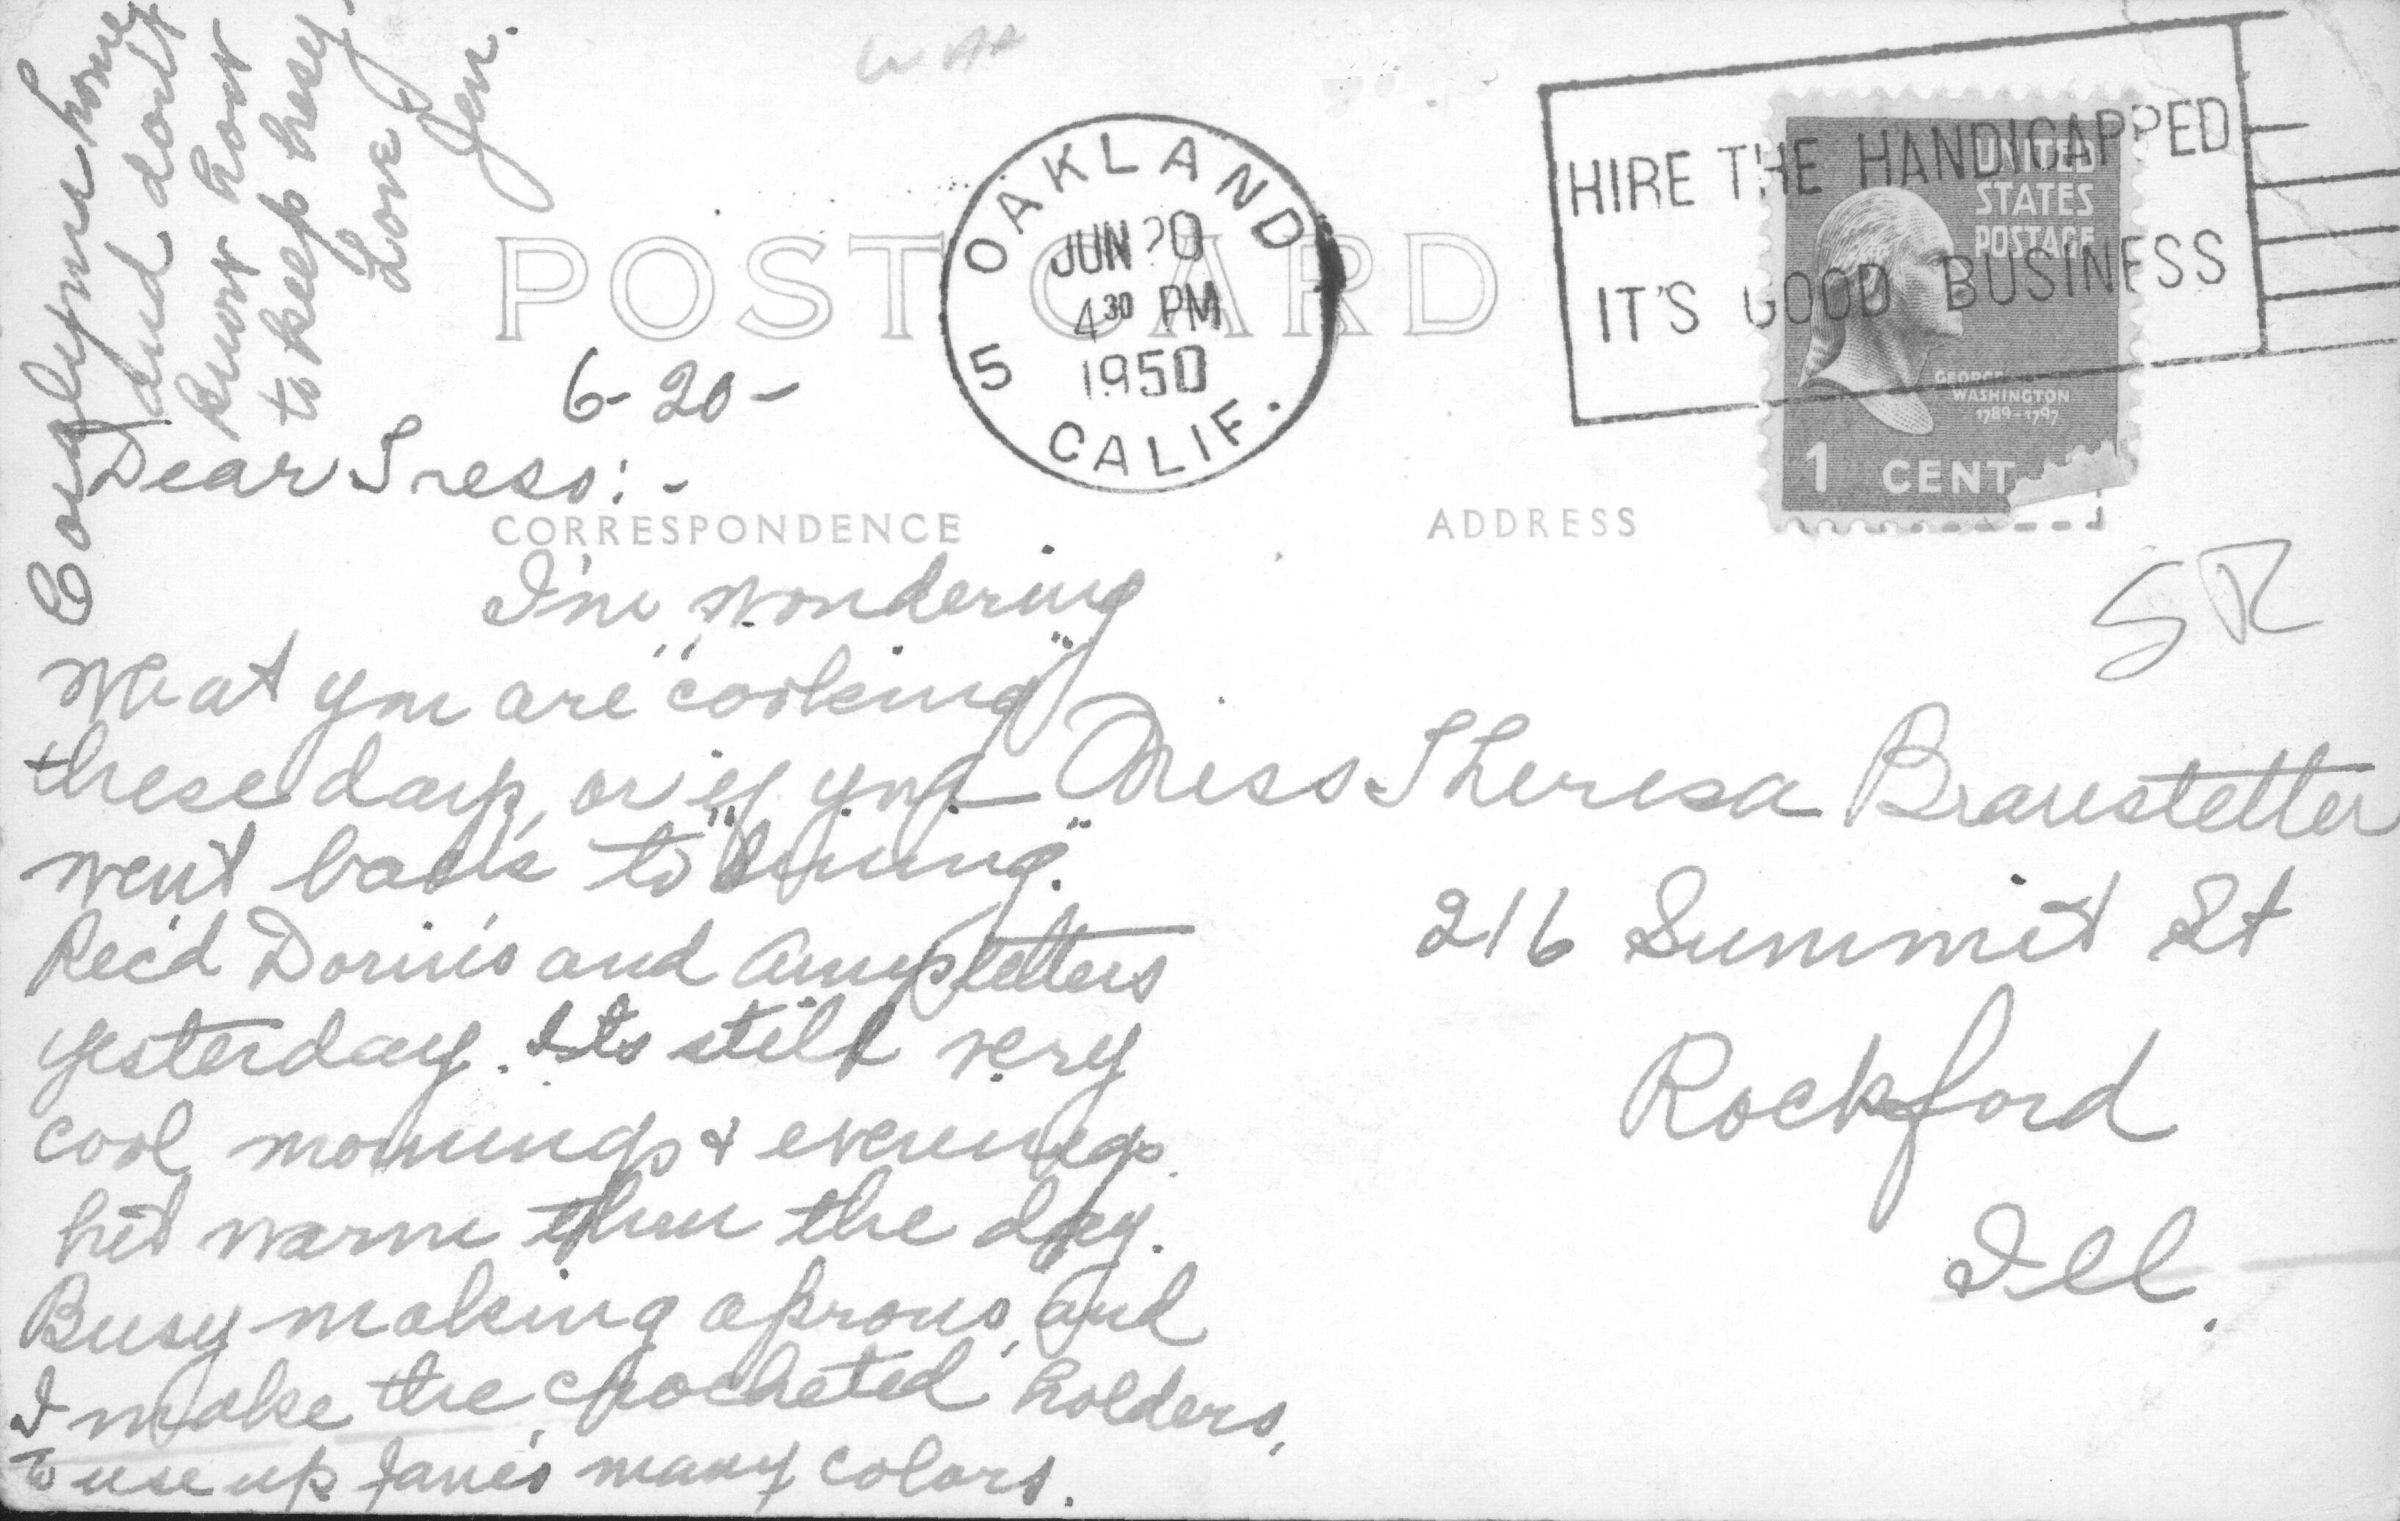 OAKLAND
JUN 20
4 30 PM
1950
5 CALIF.
HIRE THE HANDICAPPED
IT'S GOOD BUSINESS
UNITED
STATES
POSTAGE
GEORGE
WASHINGTON
1789-1797
1 CENT
POST CARD
CORRESPONDENCE
ADDRESS
6-20-
Dear Tress:-
I'm wondering
what you are "cooking"
these days, or if you
went back to
Rec'd Dorin's and Amy's letters
yesterday. Its still very
cool mornings & evenings
but warm thru the day.
Busy making aprons, and
I make the crocheted holders,
to use up Jane's many colors.
home
and don't
know how
to keep busy.
Love
Jen.
SR
Miss Theresa Braustetter
216 Summit St
Rockford
Ill.